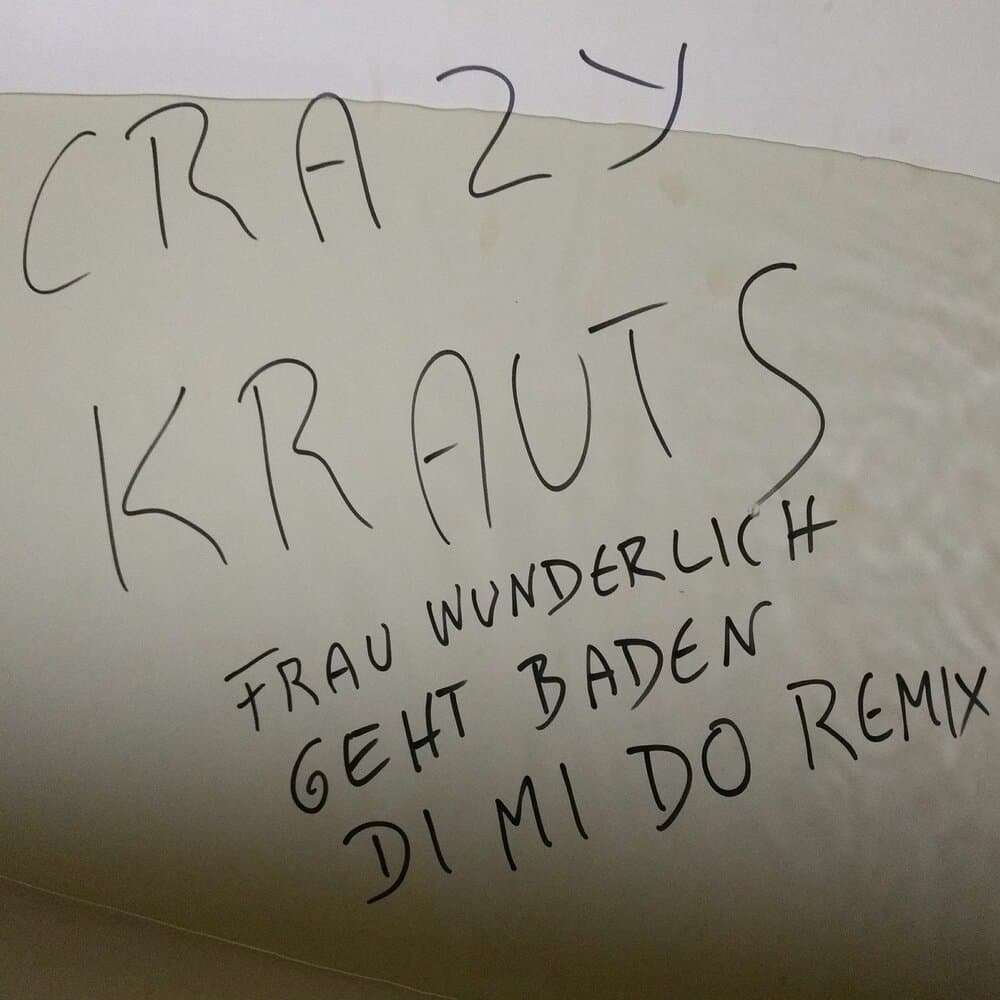 CRAZY
KRAUTS
FRAU WUNDERLICH
GEHT BADEN
DI MI DO REMIX